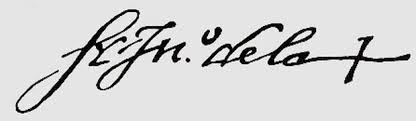 fr. Jn.º de la †